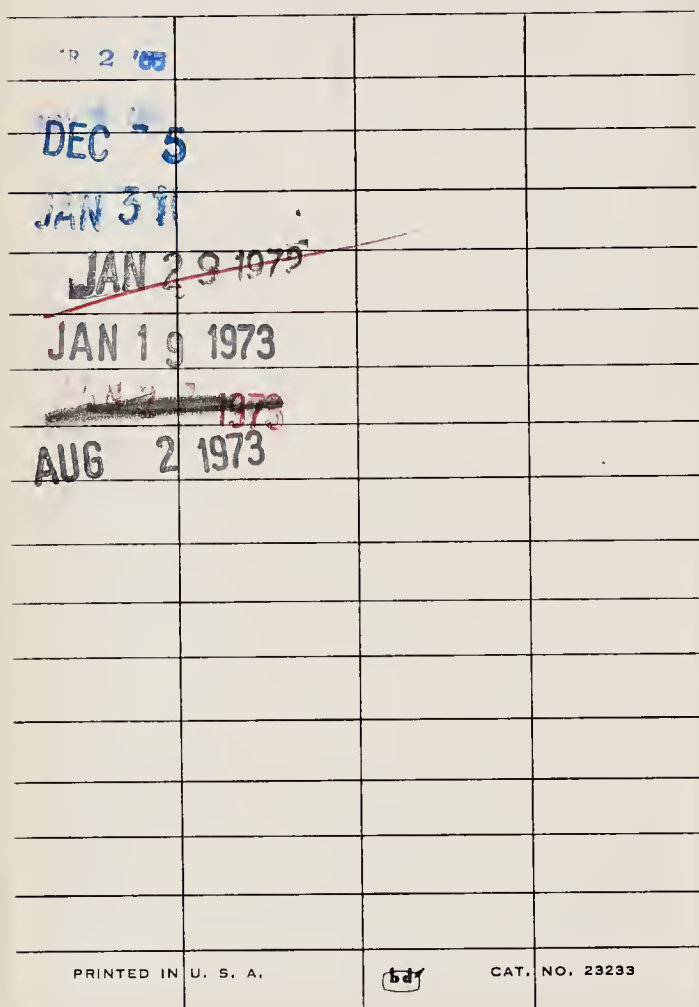 2
DEC - 5
JAN
JAN 29 1973
JAN 19 1973
1973
AUG 2 1973
PRINTED IN U. S. A. bd CAT. NO. 23233